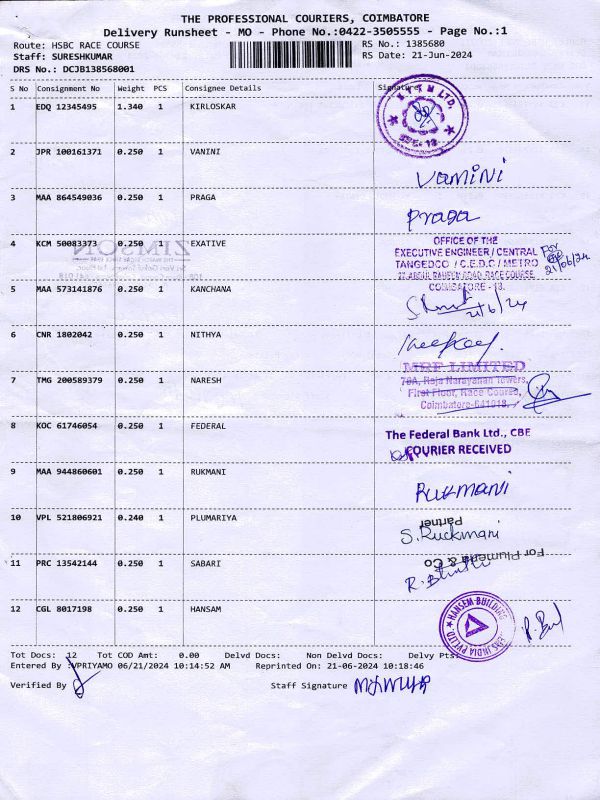 THE PROFESSIONAL COURIERS, COIMBATORE
Delivery Runsheet - MO - Phone No.:0422-3505555 - Page No.:1
Route: HSBC RACE COURSE RS No.: 1385680
Staff: SURESHKUMAR RS Date: 21-Jun-2024
DRS No.: DCJB138568001
S No Consignment No Weight PCS Consignee Details Signature
1 EDQ 12345495 1.340 1 KIRLOSKAR
2 JPR 100161371 0.250 1 VANINI
Vamini
3 MAA 864549036 0.250 1 PRAGA
Praga
4 KCM 50083373 0.250 1 EXATIVE
ZIMSON
OFFICE OF THE
EXECUTIVE ENGINEER / CENTRAL
TANGEDCO / C.E.D.C / METRO
RACE COURSE
COIMBATORE - 18.
For
21/06/24
5 MAA 573141876 0.250 1 KANCHANA
21/6/24
6 CNR 1802042 0.250 1 NITHYA
7 TMG 200589379 0.250 1 NARESH
MRF LIMITED
70A, Raja Narayanan Towers,
First Floor, Race Course,
Coimbatore-641018.
8 KOC 61746054 0.250 1 FEDERAL
The Federal Bank Ltd., CBE
COURIER RECEIVED
9 MAA 944860601 0.250 1 RUKMANI
Rukmani
10 VPL 521806921 0.240 1 PLUMARIYA
Partner
S. Ruckmani
11 PRC 13542144 0.250 1 SABARI
12 CGL 8017198 0.250 1 HANSAM
HANSEM BUILDING
INDIA PVT LTD
Tot Docs: 12 Tot COD Amt: 0.00 Delvd Docs: Non Delvd Docs: Delvy Pts:
Entered By :VPRIYAMO 06/21/2024 10:14:52 AM Reprinted On: 21-06-2024 10:18:46
Verified By Staff Signature